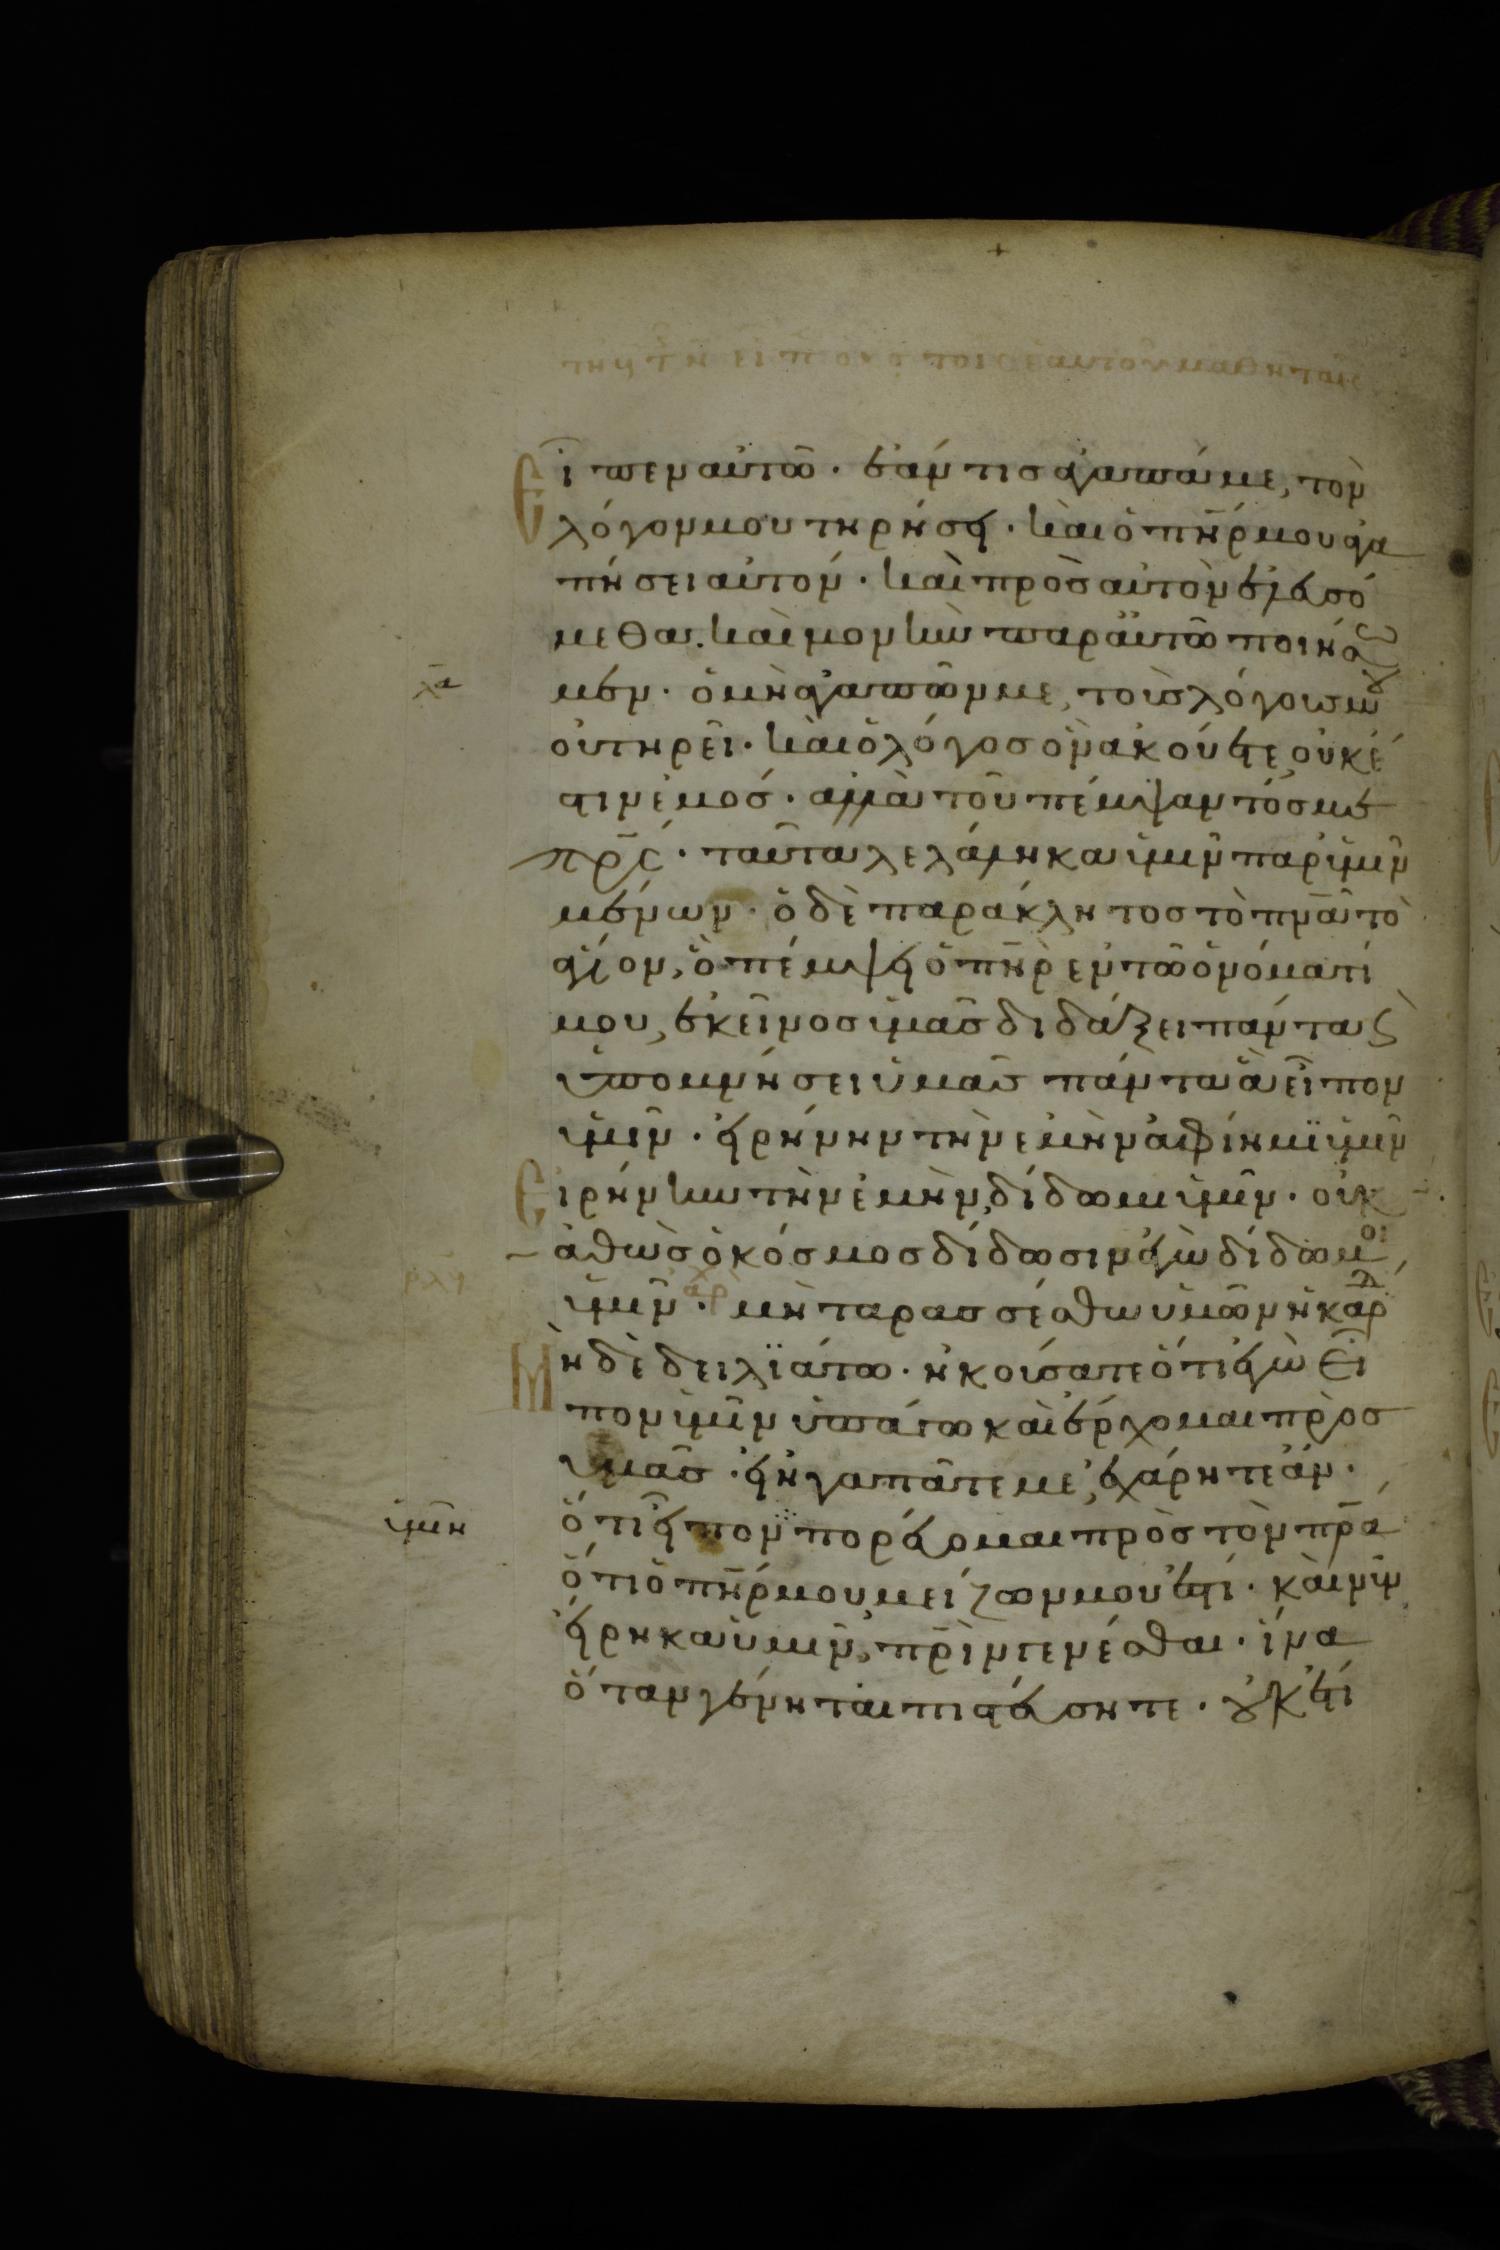 εἶπεν αὐτῶ· ἐάν τις ἀγαπᾶ με, τὸν
λόγον μου τηρήσει· καὶ ὁ πῆρ μου ἀγα
πήσει αὐτόν· καὶ πρὸς αὐτὸν ἐλευσό
μεθα. καὶ μονὴν παρ' αὐτῶ ποιήσο
μεν· ὁ μὴ ἀγαπῶν με, τοὺς λόγους μου
οὐ τηρεῖ· καὶ ὁ λόγος ὃν ἀκούετε, οὐκ ἔ
στιν ἐμὸς· ἀλλὰ τοῦ πέμψαντός με
πρς· ταῦτα λελάληκα ὑμῖν παρ' ὑμῖν
μένων· ὁ δὲ παράκλητος τὸ πνα τὸ
ἅγιον, ὃ πέμψει ὁ πηρ ἐν τῶ ὀνόματί
μου, ἐκεῖνος ὑμᾶς διδάξει πάντα ϛ
ὑπομνήσει ὑμᾶς πάντα ἃ εἶπον
ὑμῖν· εἰρήνην τὴν ἐμὴν ἀφίημι ὑμῖν
εἰρήνην τὴν ἐμὴν δίδωμι ὑμῖν· οὐ κ
αθὼς ὁ κόσμος δίδωσιν ἐγὼ δίδωμι
ὑμῖν· μὴ ταρασσέσθω ὑμῶν ἡ καρδ
μηδὲ δειλιάτω· ἠκούσατε ὅτι ἐγὼ εἶ
πον ὑμῖν ὑπάγω καὶ ἔρχομαι πρὸς
ὑμᾶς· εἰ ἠγαπᾶτε με, ἐχάρητε ἄν·
ὅτι εἶπον πορεύομαι πρὸς τὸν πρα
ὅτι ὁ πηρ μου μείζων μου ἐστί· καὶ νῦν
εἴρηκα ὑμῖν, πρὶν γενέσθαι· ἵνα
ὅταν γένηται πιστεύσητε· οὐκ ἔτι